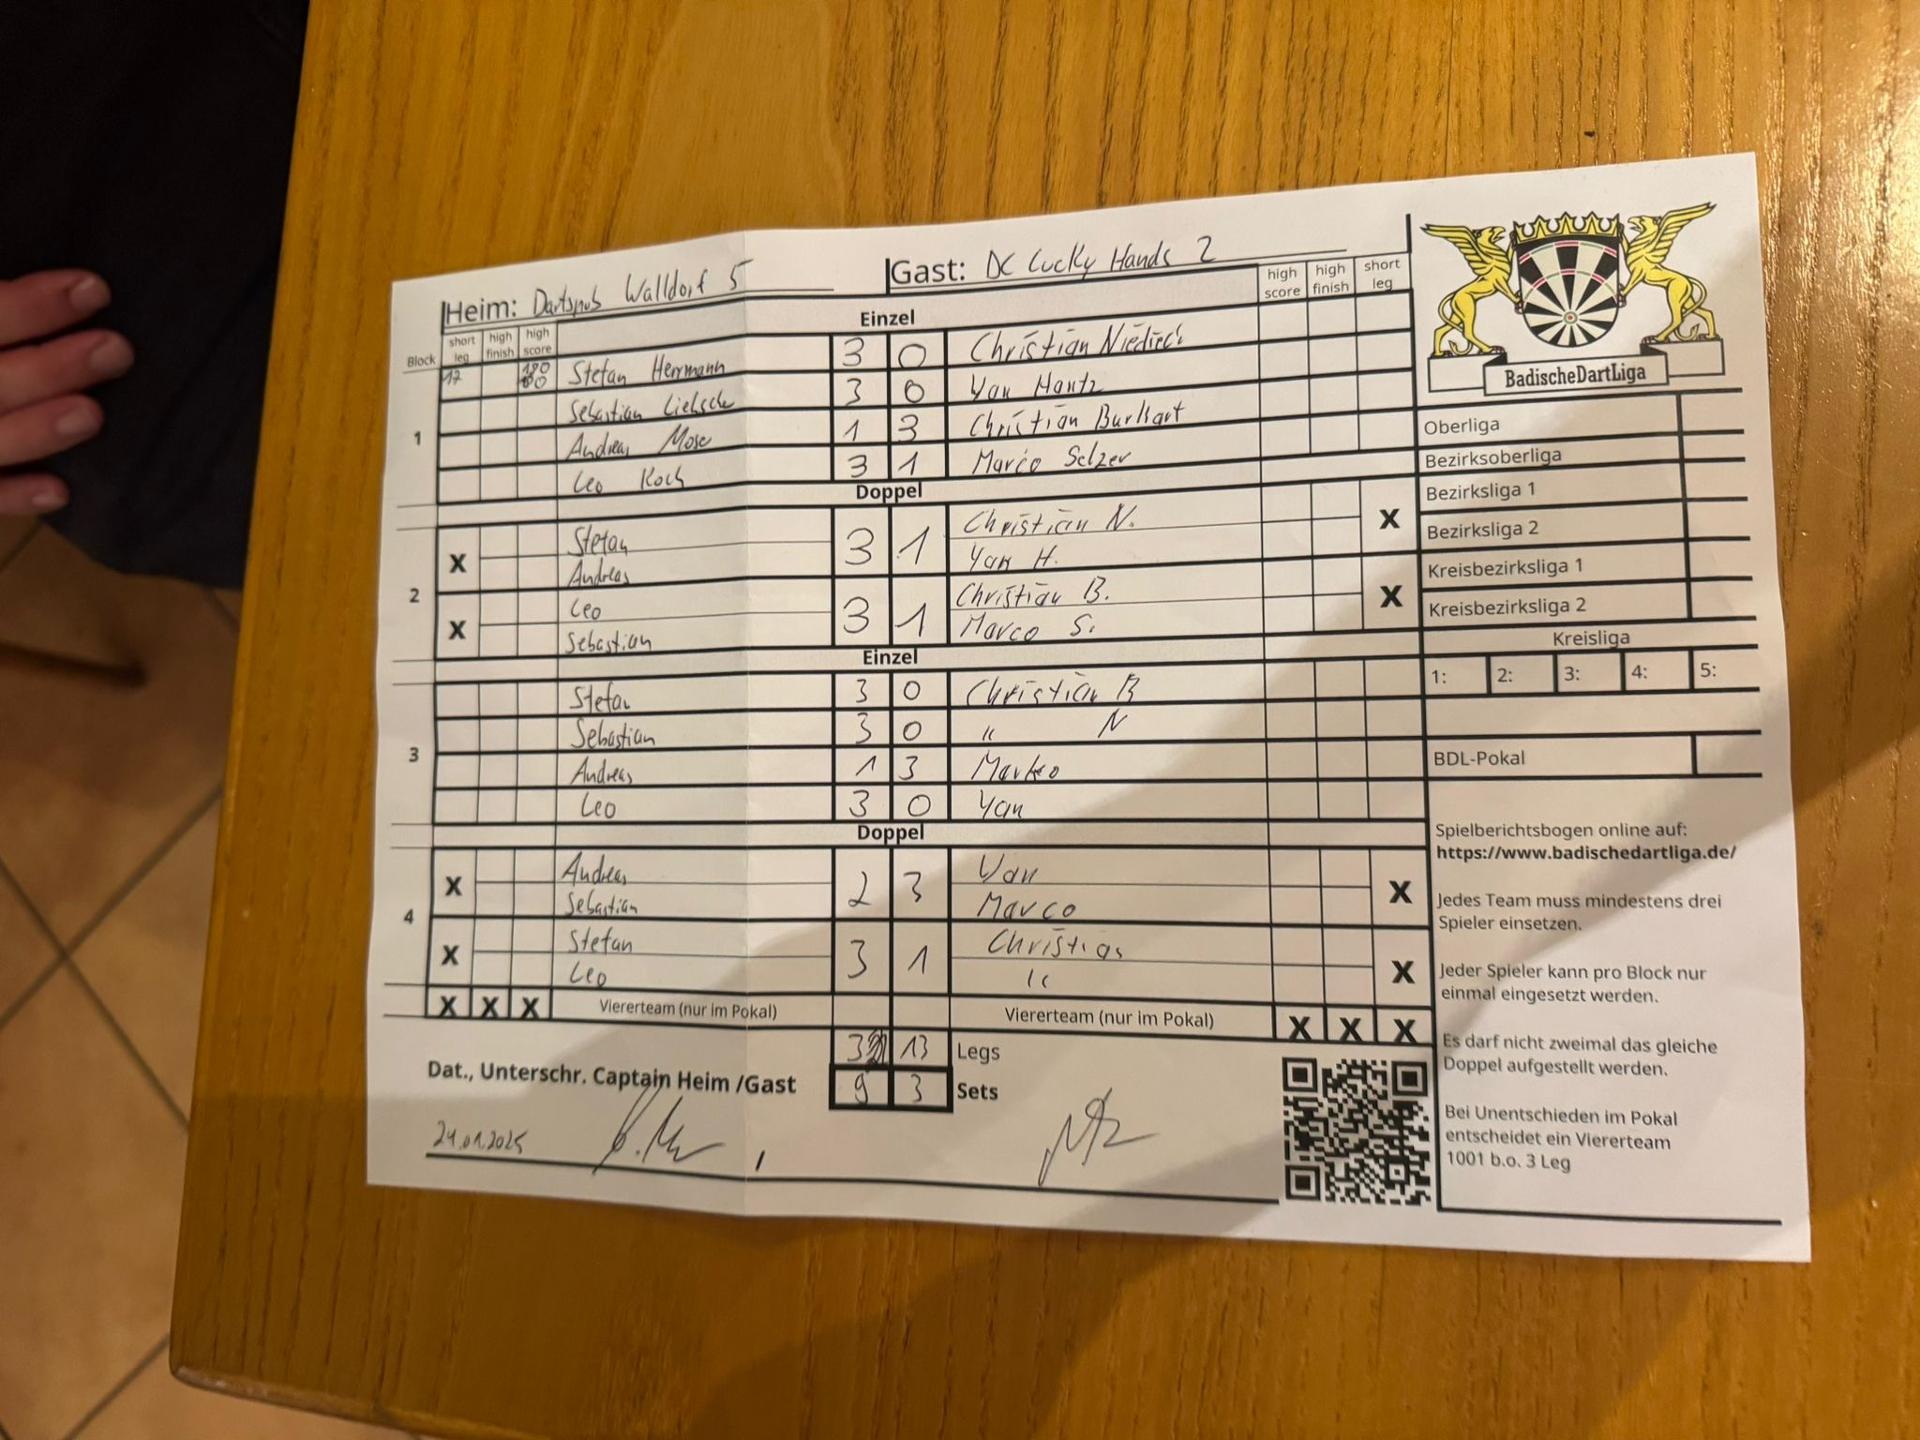 Heim: Dartspub Walldorf 5
Gast: DC Lucky Hands 2
Block short leg high finish high score
Einzel
high score high finish short leg
1
17 180 Stefan Herrmann 3 0 Christian
Sebastian 3 0 Yan Hantz
Andreas Mose 1 3 Christian Burkart
Leo Koch 3 1 Marco Selzer
Doppel
2
X Stefan 3 1 Christian N. X
Andreas Yan H.
X Leo 3 1 Christian B. X
Sebastian Marco S.
Einzel
3
Stefan 3 0 Christian B
Sebastian 3 0 " N
Andreas 1 3 Marko
Leo 3 0 Yan
Doppel
4
X Andreas 2 3 Yan X
Sebastian Marco
X Stefan 3 1 Christian X
Leo "
X X X Viererteam (nur im Pokal) Viererteam (nur im Pokal) X X X
13 Legs
9 3 Sets
Dat., Unterschr. Captain Heim /Gast
24.01.2025
BadischeDartLiga
Oberliga
Bezirksoberliga
Bezirksliga 1
Bezirksliga 2
Kreisbezirksliga 1
Kreisbezirksliga 2
Kreisliga
1: 2: 3: 4: 5:
BDL-Pokal
Spielberichtsbogen online auf:
https://www.badischedartliga.de/
Jedes Team muss mindestens drei
Spieler einsetzen.
Jeder Spieler kann pro Block nur
einmal eingesetzt werden.
Es darf nicht zweimal das gleiche
Doppel aufgestellt werden.
Bei Unentschieden im Pokal
entscheidet ein Viererteam
1001 b.o. 3 Leg